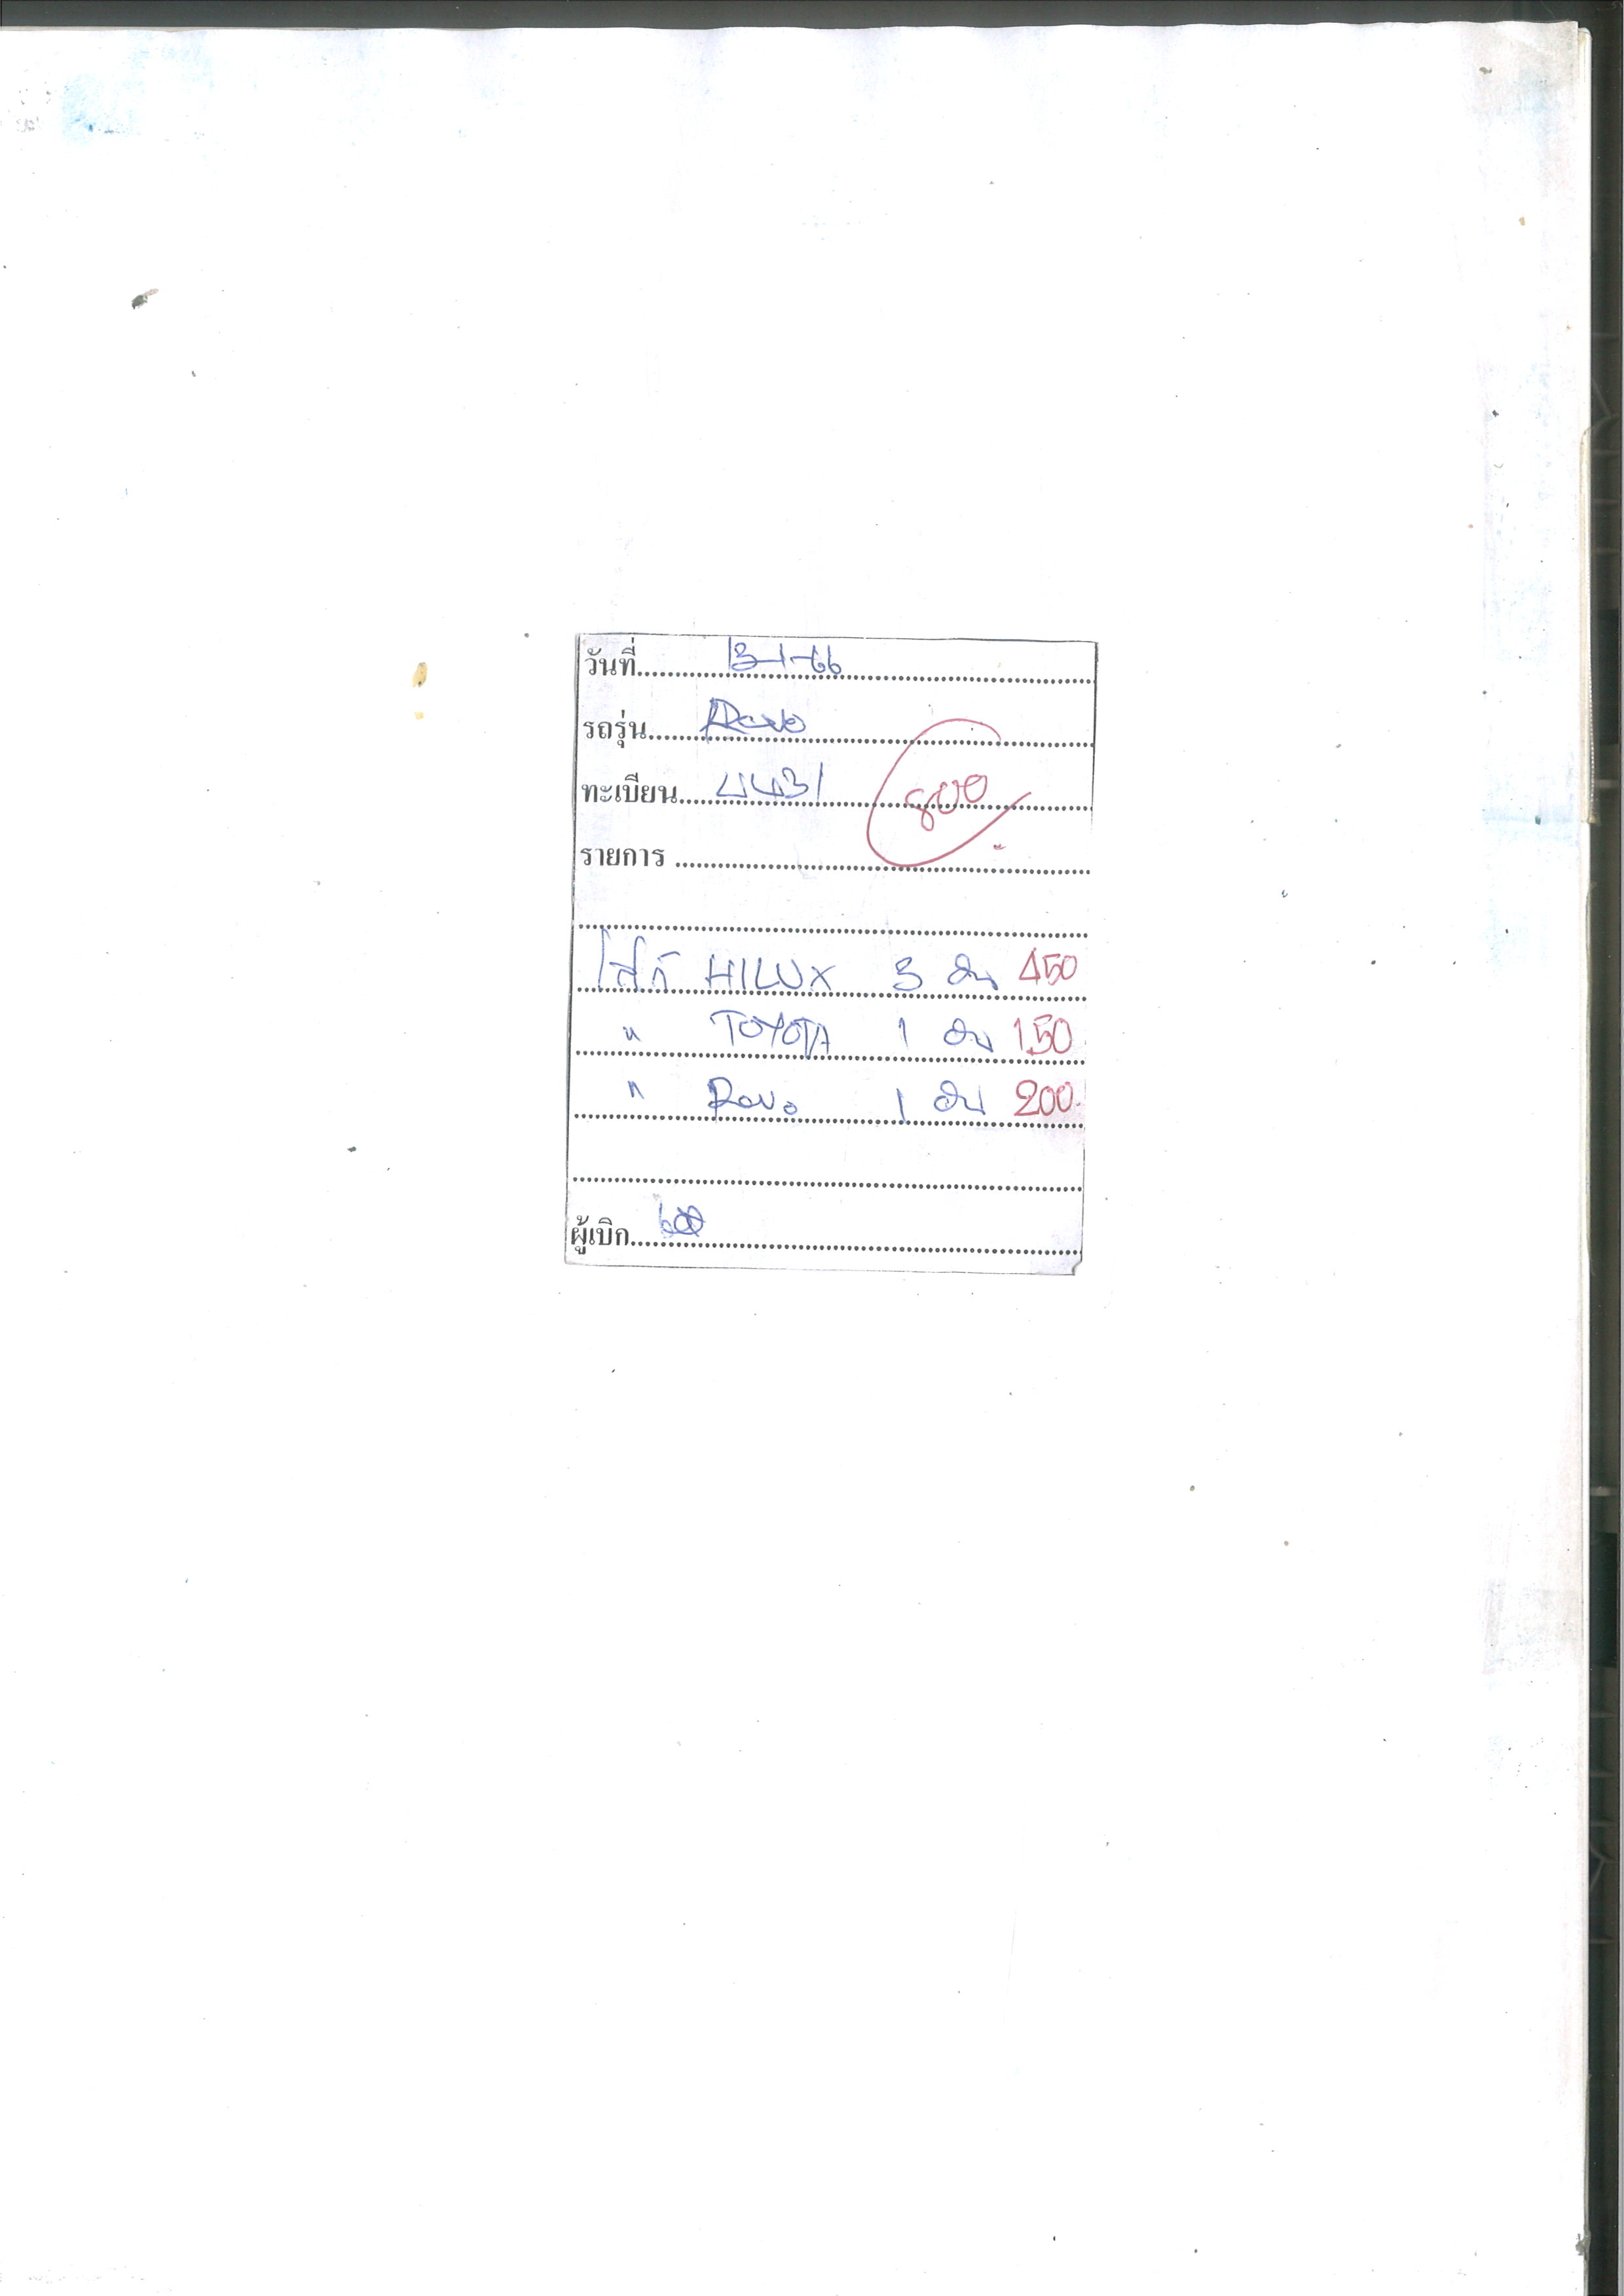 วันที่ 13-1-66
รถรุ่น Revo
ทะเบียน 4431
800
รายการ
โลโก้ HILUX 3 อัน 450
" TOYOTA 1 อัน 150
" Revo 1 อัน 200
ผู้เบิก